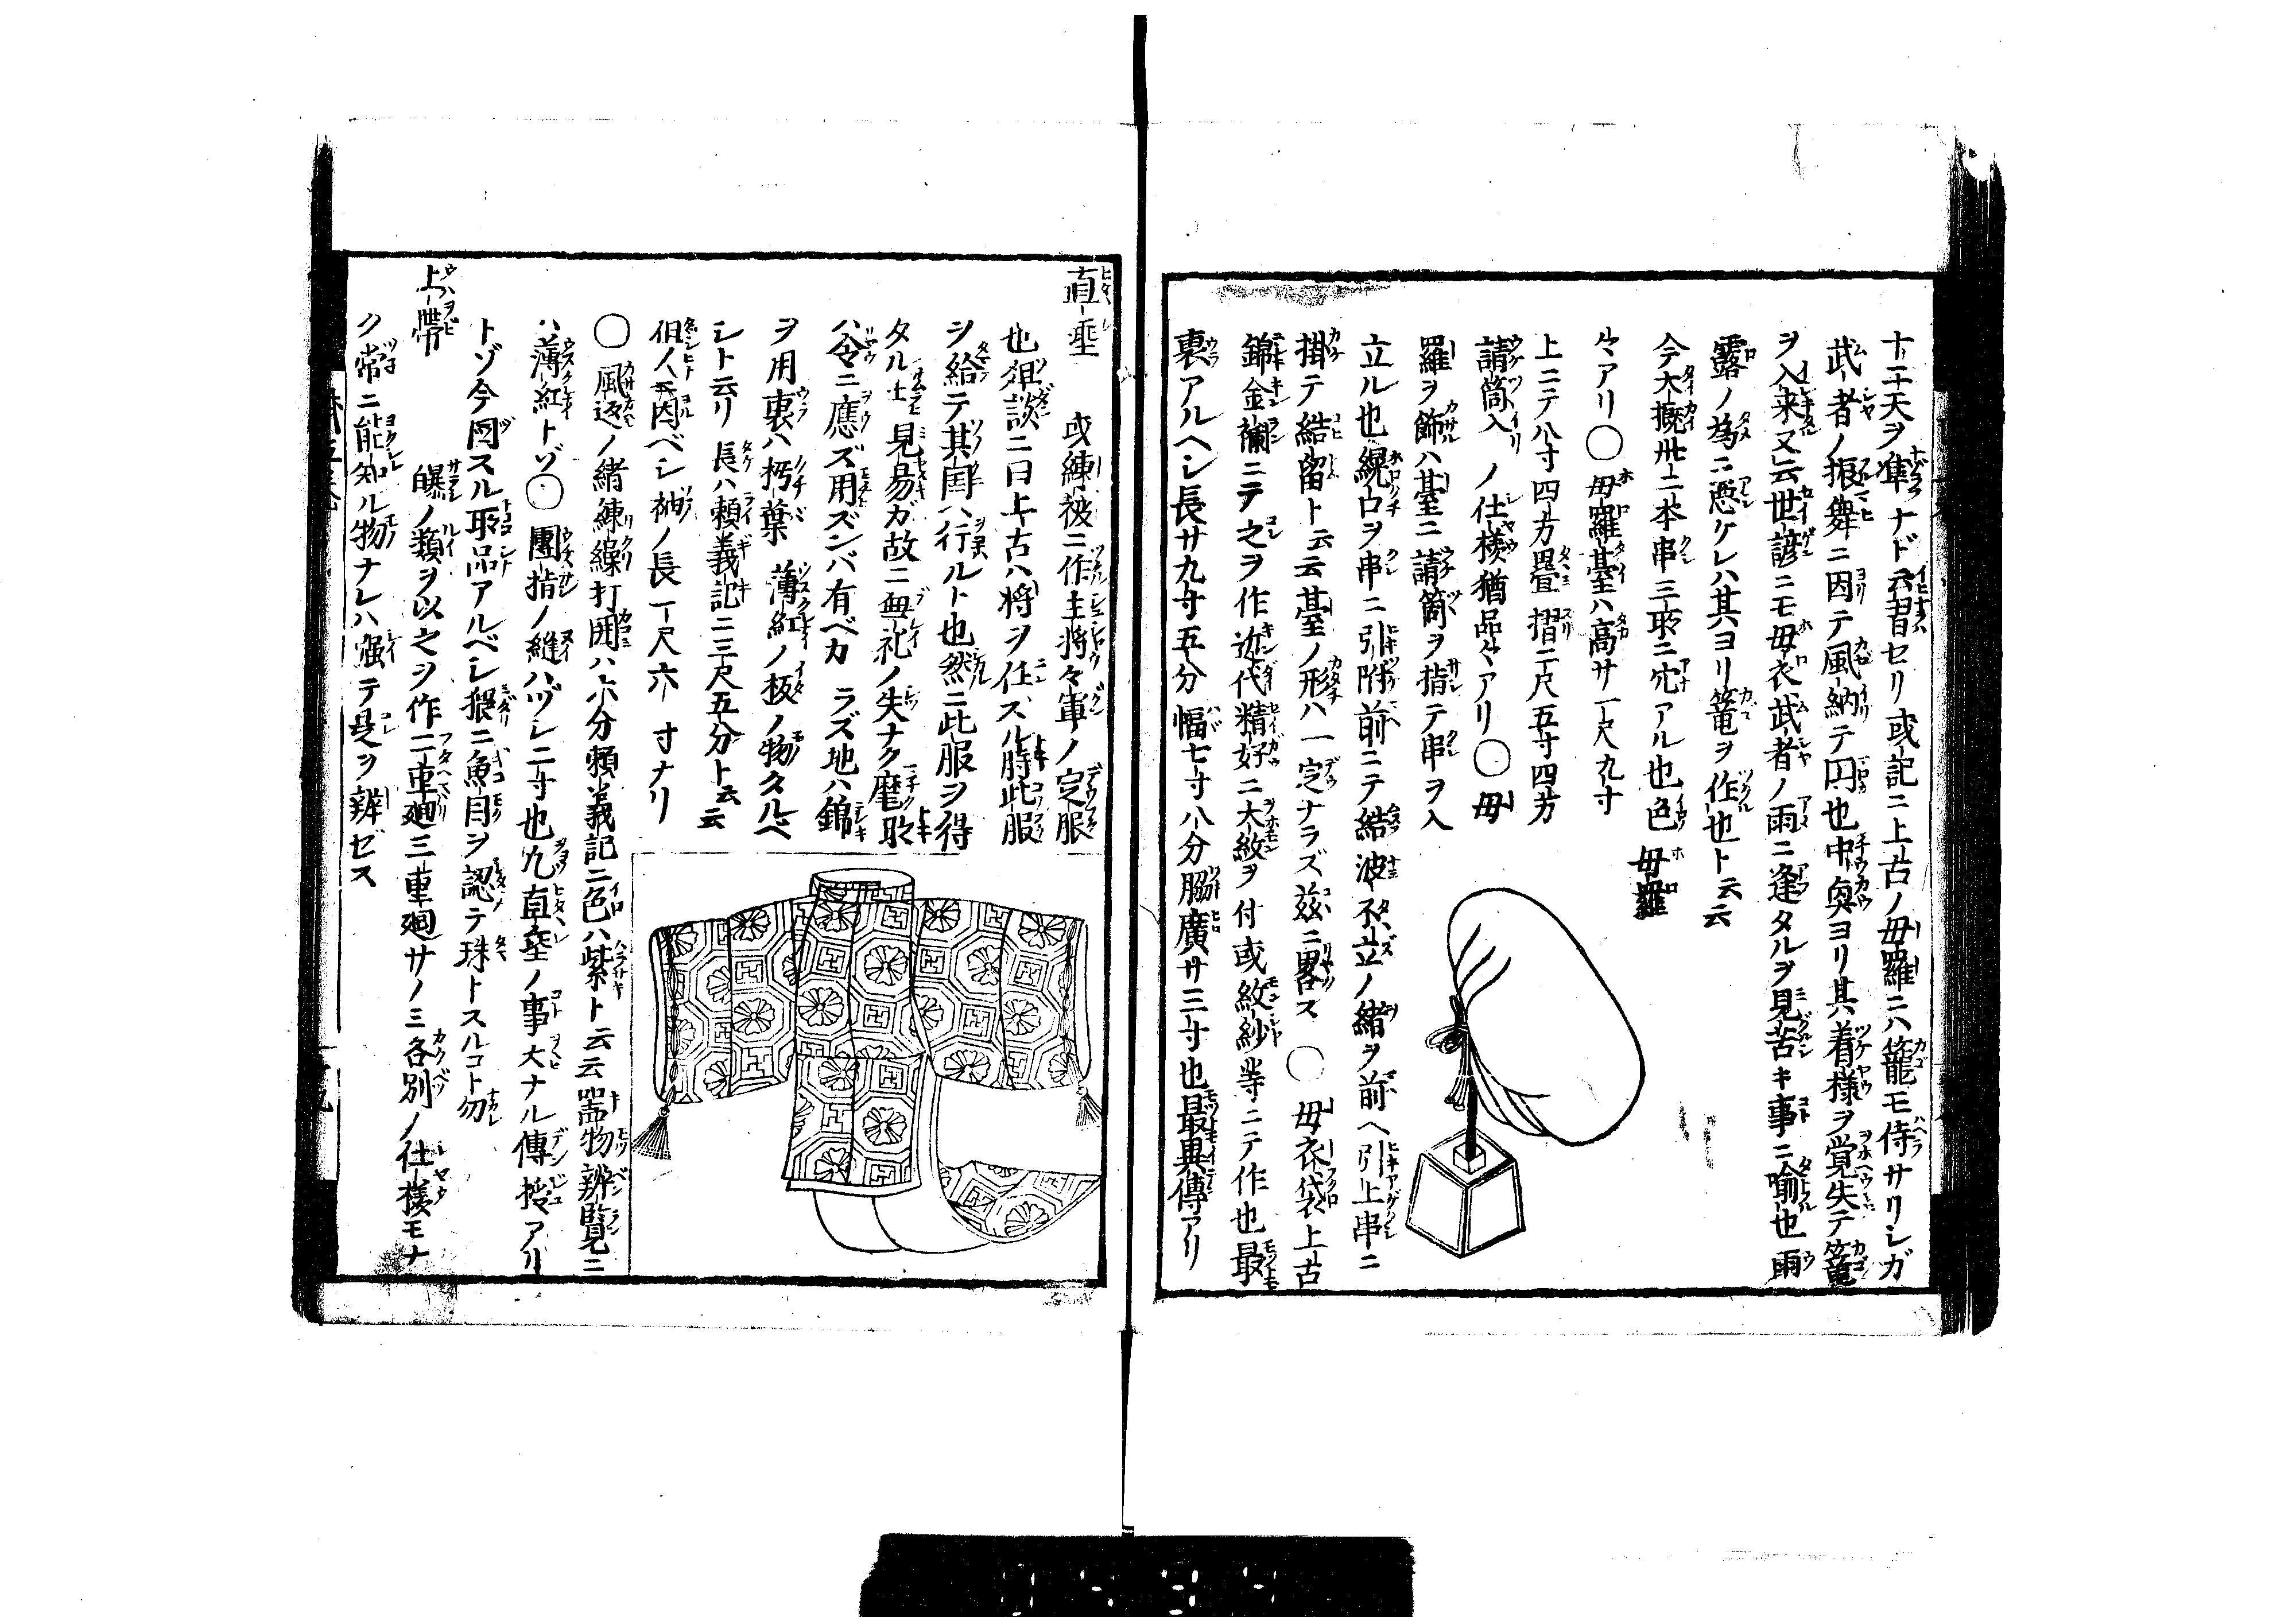 十二天ヲ準ナド云習セリ或記ニ上古ノ毋羅ニハ籠モ侍サリシガ
武者ノ振舞ニ因テ風納テ円也中奥ヨリ其着様ヲ覚失テ篭
ヲ入来又云世諺ニモ毋衣武者ノ雨ニ逢タルヲ見苦キ事ニ喩也雨
露ノ為ニ悪ケレハ其ヨリ篭ヲ作也ト云云
今大概卅二本串三所ニ穴アル也色
々アリ〇毋羅臺ハ高サ一尺九寸
上ニテ八寸四方疊摺二尺五寸四方
請筒入ノ仕様猶品々アリ〇毋
羅ヲ飾ハ臺ニ請筒ヲ指テ串ヲ入
立ル也縨口ヲ串ニ引附前ニテ結波不立ノ緒ヲ前ヘ引上串ニ
掛テ結留ト云云臺ノ形ハ一定ナラズ茲ニ畧ス〇毋衣袋上古
錦金襴ニテ之ヲ作近代精好ニ大紋ヲ付或紋紗等ニテ作也最
裏アルヘシ長サ九寸五分幅七寸八分脇廣サ三寸也最異傳アリ
毋羅
直垂 或練被ニ作主將々軍ノ定服
也爼談ニ曰上古ハ將ヲ任スル時此服
ヲ給テ其國ヘ行ルト也然ニ此服ヲ得
タル士見易ガ故ニ無礼ノ失ナク麾取
ハ令ニ應ズ用ズンバ有ベカラズ地ハ錦
ヲ用裏ハ朽葉薄紅ノ板ノ物タルベ
シト云リ長ハ頼義記ニ三尺五分ト云云
但人ニ因ベシ袖ノ長一尺六寸ナリ
〇風返ノ緒練繰打囲ハ六分頼義記ニ色ハ紫ト云云噐物辨覧ニ
ハ薄紅トゾ〇團指ノ縫ハヅレ二寸也九直垂ノ事大ナル傳授アリ
トゾ今図スル所品アルベシ猥ニ魚目ヲ認テ珠トスルコト勿
上帶 曝ノ類ヲ以之ヲ作二重廻三重廻サノミ各別ノ仕様モナ
ク常ニ能知ル物ナレハ強テ是ヲ辨ゼス